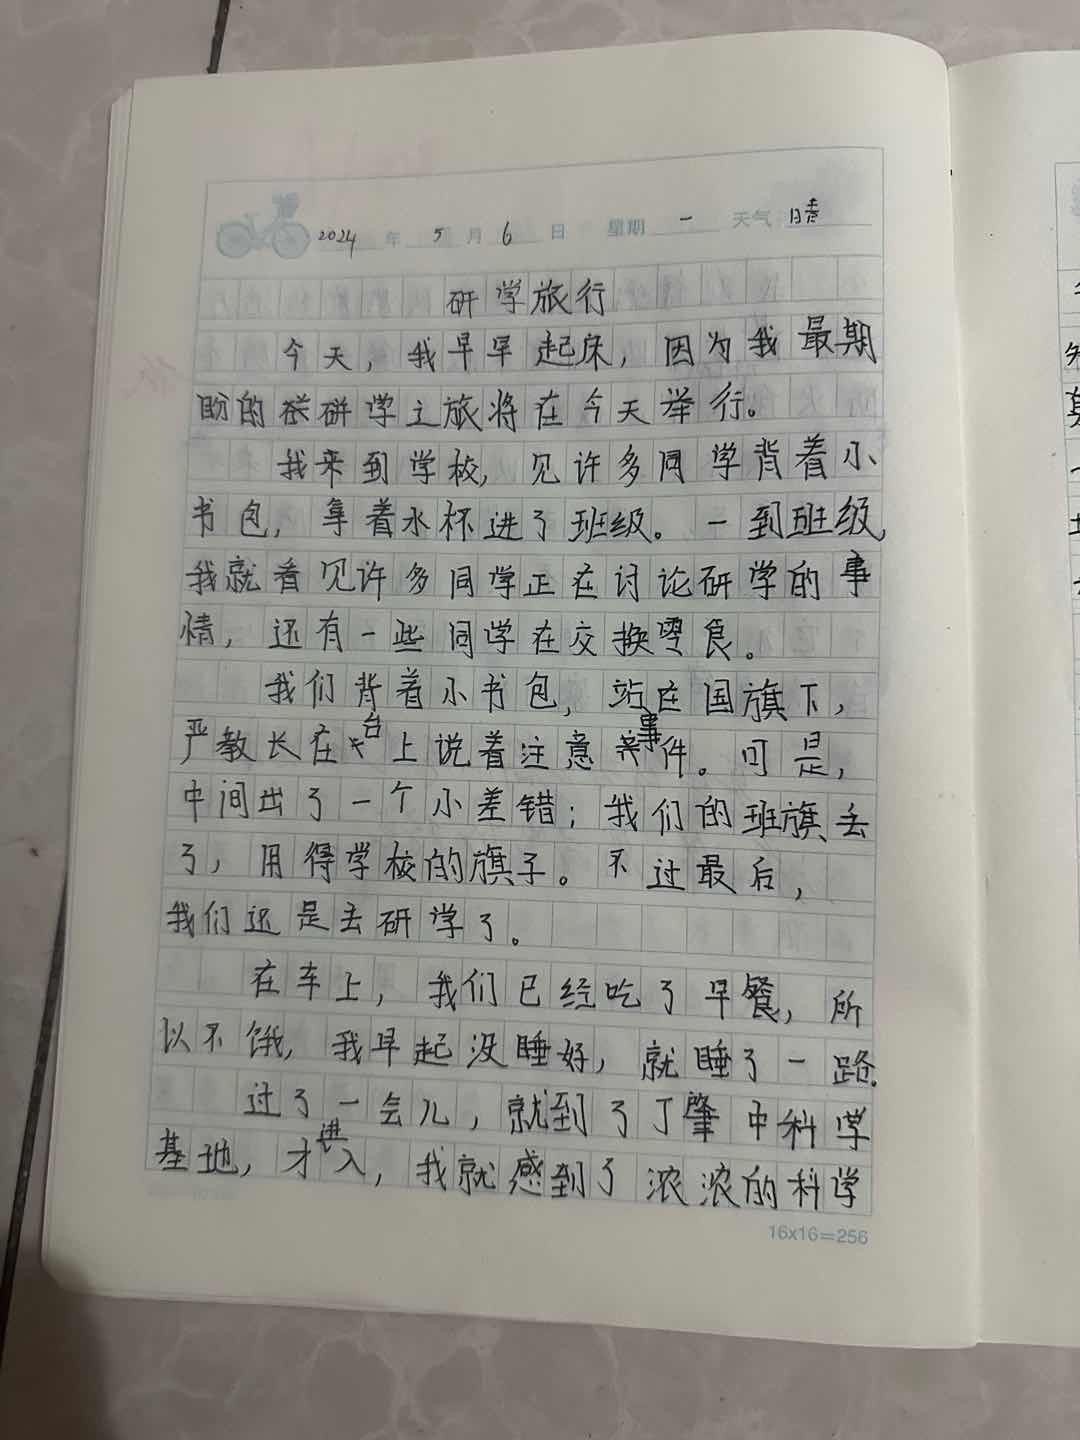 2024 年 5 月 6 日 星期 一 天气 晴
研学旅行
今天，我早早起床，因为我最期
盼的研学之旅将在今天举行。
我来到学校，见许多同学背着小
书包，拿着水杯进了班级。一到班级，
我就看见许多同学正在讨论研学的事
情，还有一些同学在交换零食。
我们背着小书包，站在国旗下，
严教长在台上说着注意事件。可是，
中间出了一个小差错；我们的班旗丢
了，用得学校的旗子。不过最后，
我们还是去研学了。
在车上，我们已经吃了早餐，所
以不饿，我早起没睡好，就睡了一路。
过了一会儿，就到了丁肇中科学
基地，才进入，我就感到了浓浓的科学
16x16=256